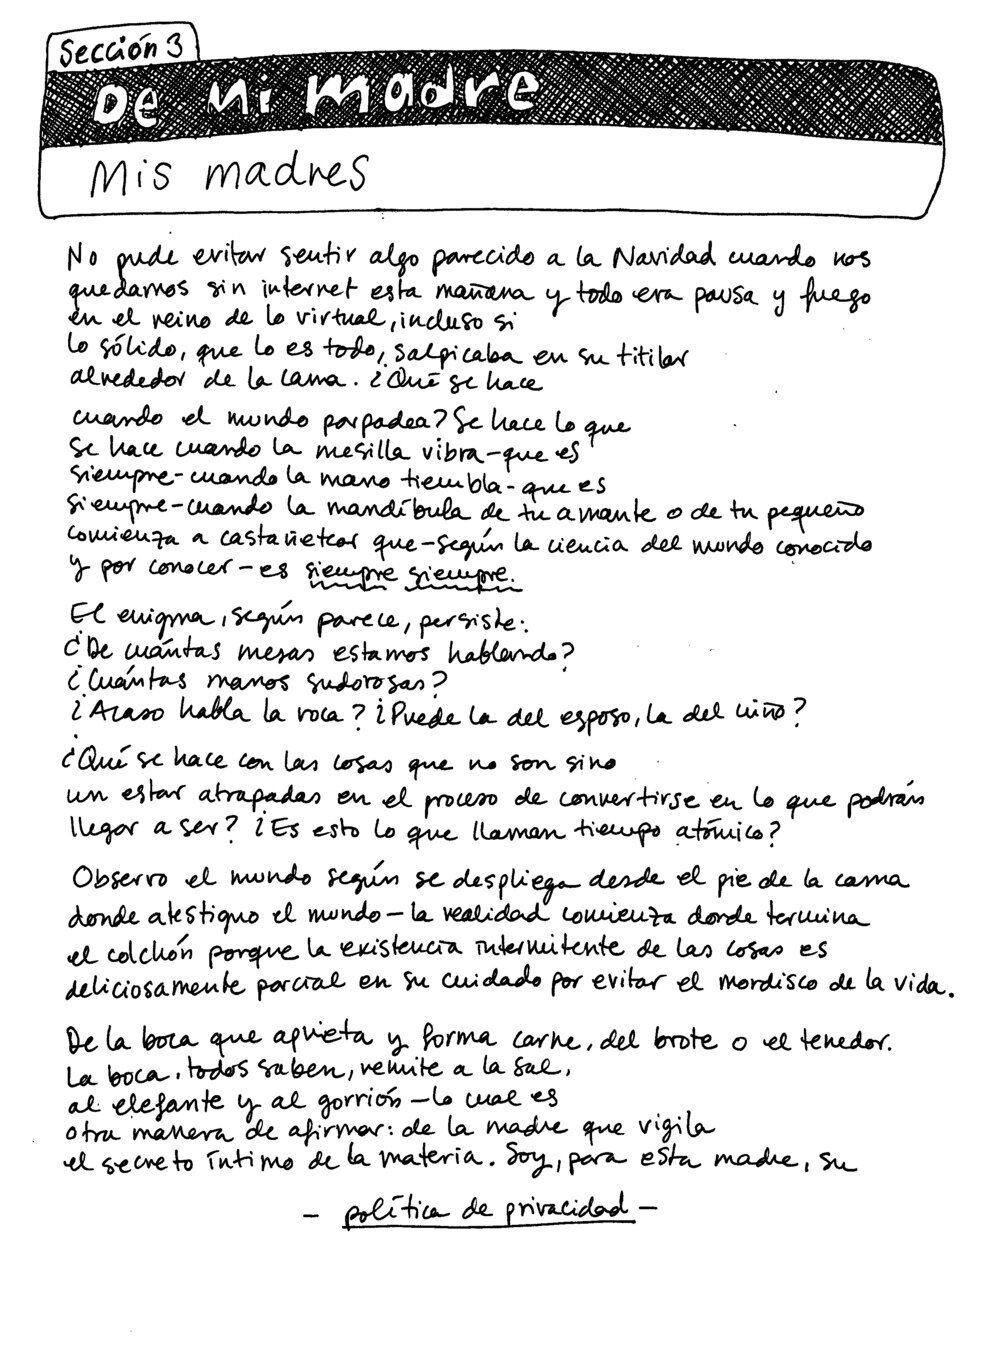 Sección 3
De mi madre
Mis madres
No pude evitar sentir algo parecido a la Navidad cuando nos
quedamos sin internet esta mañana y todo era pausa y fuego
en el reino de lo virtual, incluso si
lo sólido, que lo es todo, salpicaba en su titilar
alrededor de la cama. ¿Qué se hace
cuando el mundo parpadea? Se hace lo que
se hace cuando la mesilla vibra-que es
siempre-cuando la mano tiembla-que es
siempre-cuando la mandíbula de tu amante o de tu pequeño
comienza a castañetear que-según la ciencia del mundo conocido
y por conocer-es siempre siempre.
El enigma, según parece, persiste:
¿De cuántas mesas estamos hablando?
¿Cuántas manos sudorosas?
¿Acaso habla la roca? ¿Puede la del esposo, la del niño?
¿Qué se hace con las cosas que no son sino
un estar atrapadas en el proceso de convertirse en lo que podrán
llegar a ser? ¿Es esto lo que llaman tiempo atómico?
Observo el mundo según se despliega desde el pie de la cama
donde atestiguo el mundo-la realidad comienza donde termina
el colchón porque la existencia intermitente de las cosas es
deliciosamente parcial en su cuidado por evitar el mordisco de la vida.
De la boca que aprieta y forma carne, del brote o el tenedor.
La boca, todos saben, remite a la sal,
al elefante y al gorrión-lo cual es
otra manera de afirmar: de la madre que vigila
el secreto íntimo de la materia. Soy, para esta madre, su
- política de privacidad -